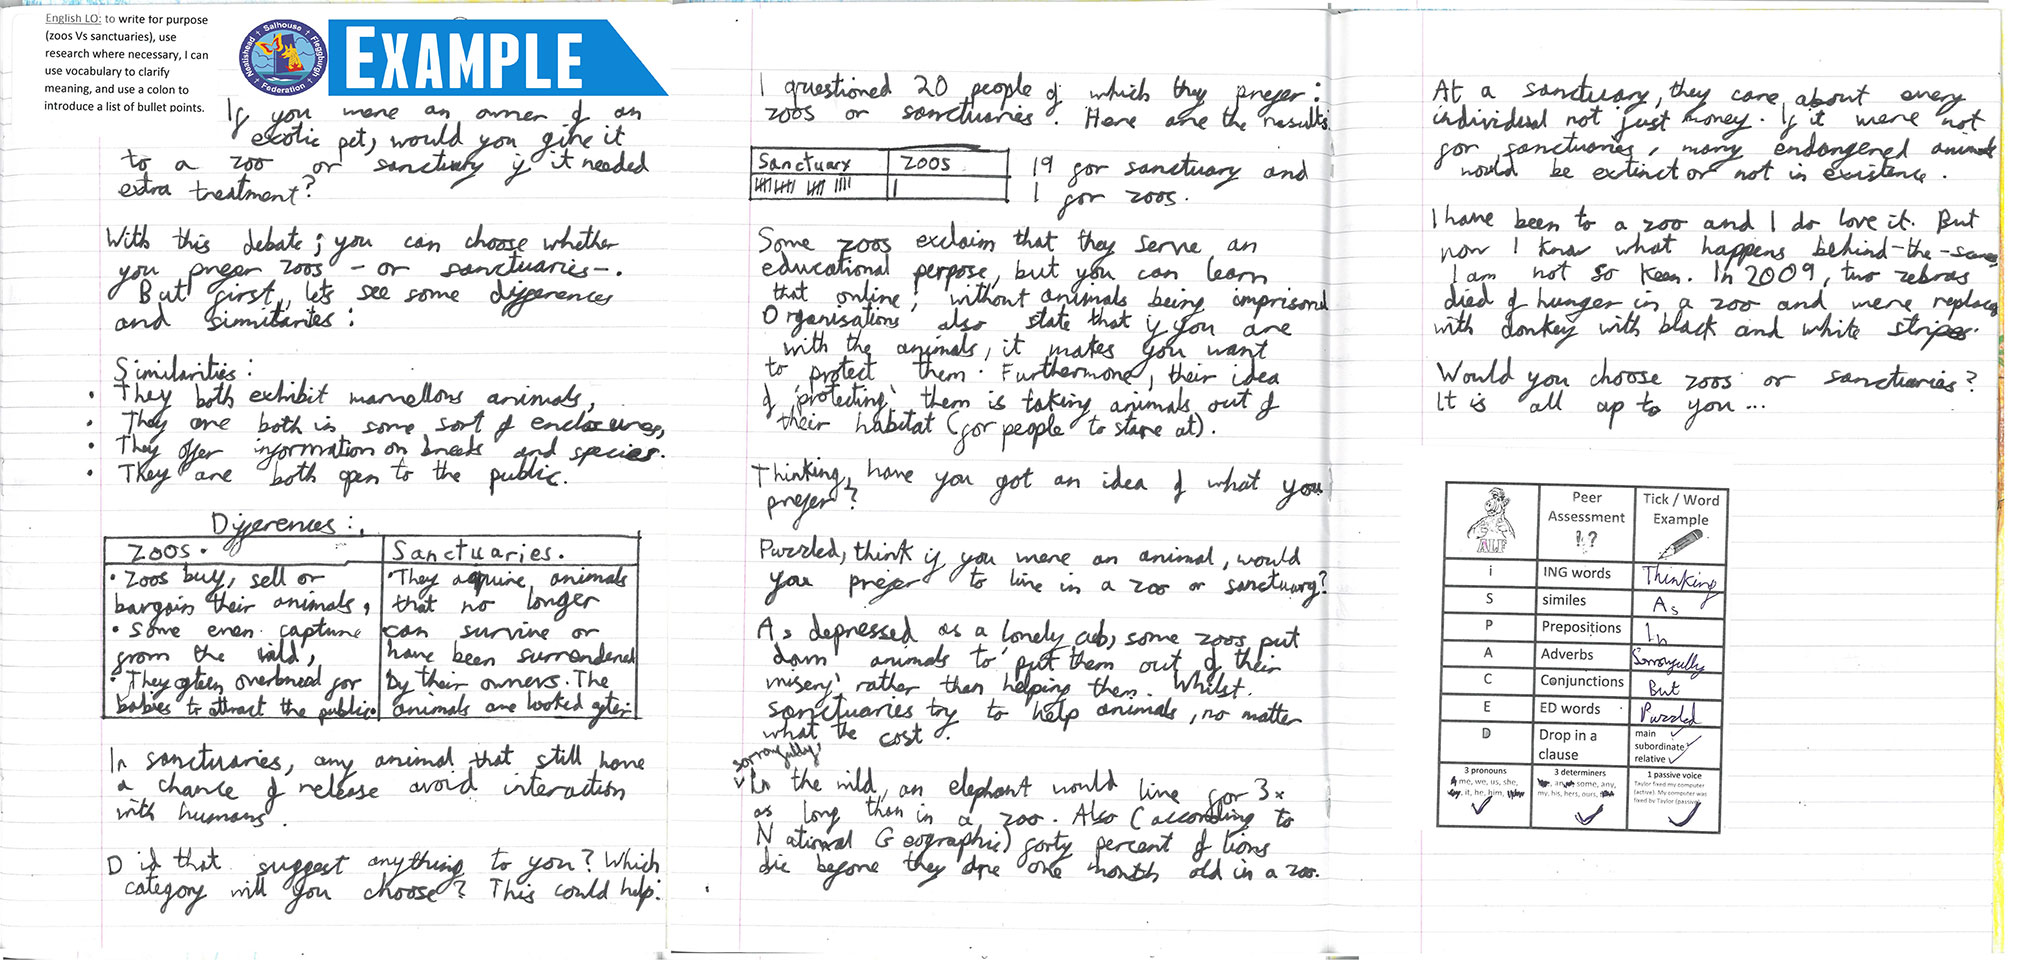 English LO: to write for purpose
(zoos Vs sanctuaries), use
research where necessary, I can
use vocabulary to clarify
meaning, and use a colon to
introduce a list of bullet points.
Neatishead Salhouse Fleggburgh
Federation
EXAMPLE
If you were an owner of an
exotic pet, would you give it
to a zoo or sanctuary if it needed
extra treatment?
With this debate; you can choose whether
you prefer zoos - or sanctuaries-.
But first, lets see some differences
and similarites:
Similarities:
• They both exhibit marvellous animals,
• They are both in some sort of enclosures,
• They offer information on breeds and species.
• They are both open to the public.
Differences:
Zoos.
• Zoos buy, sell or
bargain their animals,
• Some even capture
from the wild,
• They often overbreed for
babies to attract the public.
Sanctuaries.
• They aquire animals
that no longer
can survive or
have been surrendered
by their owners. The
animals are looked after.
In sanctuaries, any animal that still have
a chance of release avoid interaction
with humans.
Did that suggest anything to you? Which
category will you choose? This could help:
I questioned 20 people of which they prefer:
zoos or sanctuaries. Here are the results.
Sanctuary Zoos
19 for sanctuary and
1 for zoos.
Some zoos exclaim that they serve an
educational perpose, but you can learn
that online; without animals being imprisond
Organisations also state that if you are
with the animals, it makes you want
to protect them. Furthermore, their idea
of 'protecting' them is taking animals out of
their habitat (for people to stare at).
Thinking, have you got an idea of what you
prefer?
Puzzled, think if you were an animal, would
you prefer to live in a zoo or sanctuary?
As depressed as a lonely cub, some zoos put
down animals to 'put them out of their
misery' rather than helping them. Whilst
sanctuaries try to help animals, no matter
what the cost.
sorrowfully,
In the wild, an elephant would live for 3x
as long than in a zoo. Also (according to
National Geographic) forty percent of lions
die before they are one month old in a zoo.
At a sanctuary, they care about every
individual not just money. If it were not
for sanctuaries, many endangered animals
would be extinct or not in existence.
I have been to a zoo and I do love it. But
now I know what happens behind-the-scenes
I am not so keen. In 2009, two zebras
died of hunger in a zoo and were replaced
with donkey with black and white stripes.
Would you choose zoos or sanctuaries?
It is all up to you...
ALF
Peer
Assessment
!?
Tick / Word
Example
i ING words Thinking
S similes As
P Prepositions In
A Adverbs Sorrowfully
C Conjunctions But
E ED words Puzzled
D Drop in a
clause
main
subordinate
relative
3 pronouns
me, we, us, she,
it, he, him,
3 determiners
some, any,
my, his, hers, ours,
1 passive voice
Taylor fixed my computer
(active). My computer was
fixed by Taylor (passive)